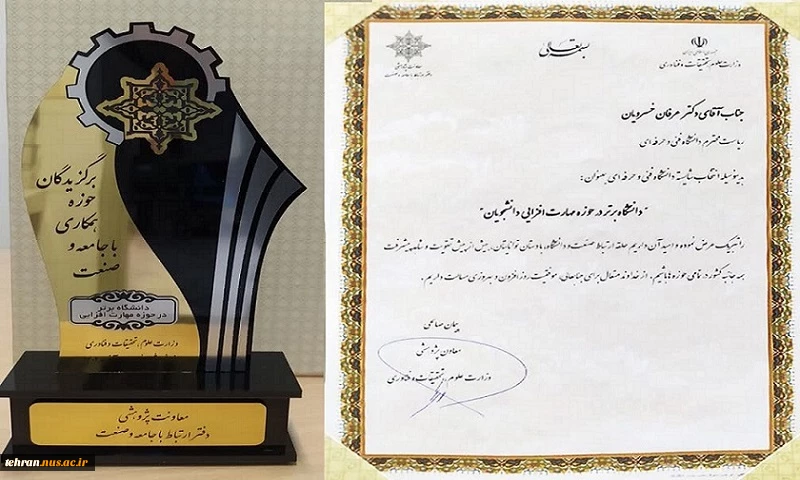 برگزیدگان
حوزه
همکاری
با جامعه و
صنعت
دانشگاه برتر
در حوزه مهارت افزایی
وزارت علوم، تحقیقات و فناوری
معاونت پژوهشی
دفتر ارتباط با جامعه و صنعت
tehran.nus.ac.ir
بسمه تعالی
جمهوری اسلامی ایران
وزارت علوم، تحقیقات و فناوری
معاونت پژوهشی
دفتر ارتباط با جامعه و صنعت
جناب آقای دکتر عرفان خسرویان
ریاست محترم دانشگاه فنی و حرفه ای
بدینوسیله انتخاب شایسته دانشگاه فنی و حرفه ای بعنوان :
"دانشگاه برتر در حوزه مهارت افزایی دانشجویان"
را تبریک عرض نموده و امید آن داریم حلقه ارتباط صنعت و دانشگاه، با دستان توانایتان، بیش از پیش تقویت و شاهد پیشرفت
همه جانبه کشور در تمامی حوزه ها باشیم. از خداوند متعال برای جنابعالی، موفقیت روز افزون و بهروزی مسالت داریم.
پیمان صالحی
معاون پژوهشی
وزارت علوم، تحقیقات و فناوری